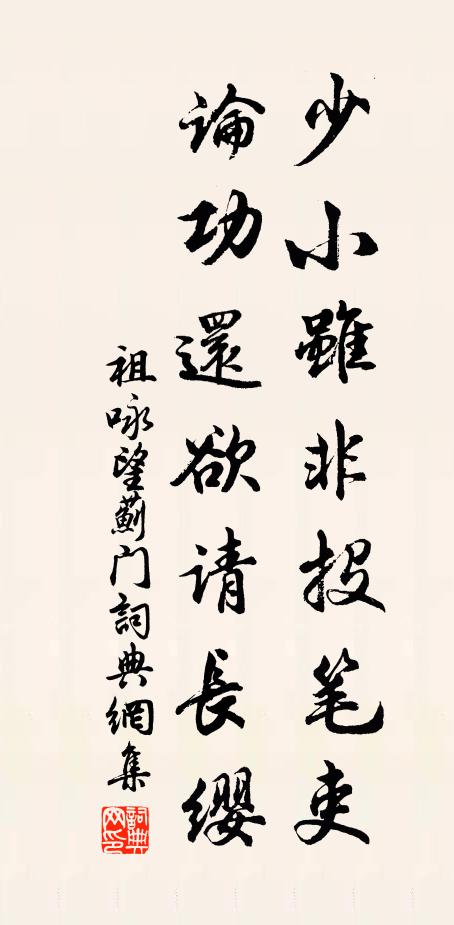 少小雖非投笔吏
論功還欲请長缨
祖咏望薊门詞典網集
詞典網印